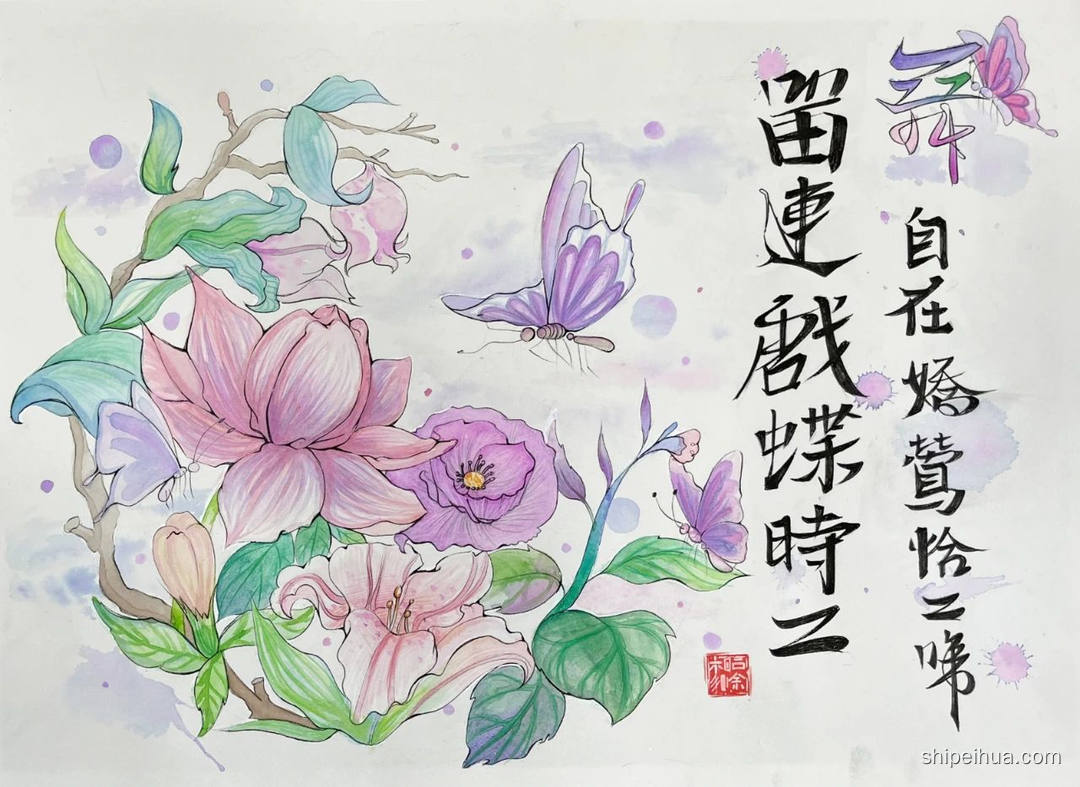 留連戲蝶時〻
舞
自在嬌鶯恰〻啼
shipeihua.com